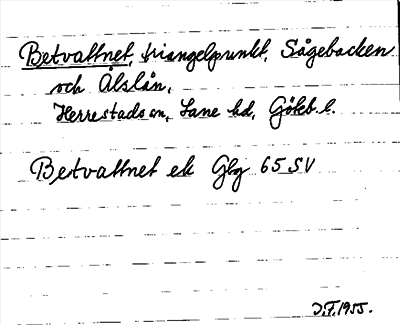 Betvattnet, triangelpunkt, Sågebacken
och Ålslån,
Herrestads sn, Lane hd, Göteb. l.
Betvattnet ek Gbg 65 SV
J.F. 1955.